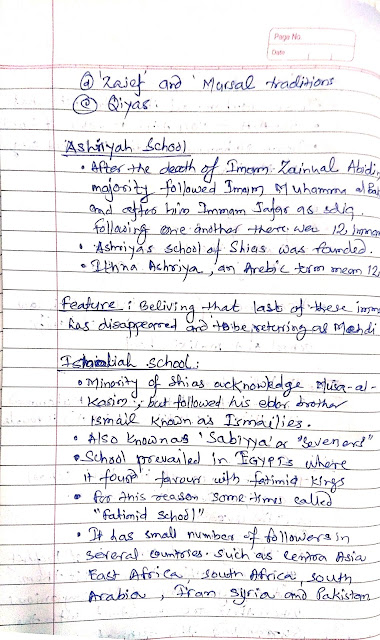 Page No.
Date
(d) 'Zaief' and 'Mursal traditions
(e) Qiyas.
Ashriyah School
• After the death of Imam Zainual Abidi,
majority followed Imam Muhamma al Bak
and after him Immam Jafar as sdiq,
following one another there wer 12 imman
• Ashriyas school of Shias was founded.
• Ithna Ashriya, an Arebic term mean 12
Feature: Beliving that last of these imm
has disappearred and to be returing as Mehdi
school:
• Minority of shias acknowledge Musa-al-
Kasim; but followed his elder brother
Ismail known as Ismailies.
• Also known as 'Sabiyya' or "Seveners"
• School prevailed in EGYPTs where
it found favour with fatimid kings
• for this reason some times called
"fatimid school"
• It has small number of followers in
several countries. such as centra Asia
East Africa, South Africa, south
Arabia, Iran Syria and Pakistan